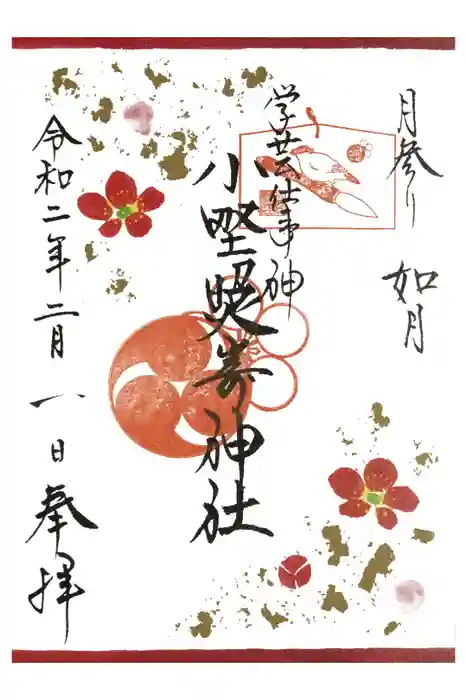 月参り 如月
学芸仕事神
小野照崎神社
令和二年二月一日奉拝